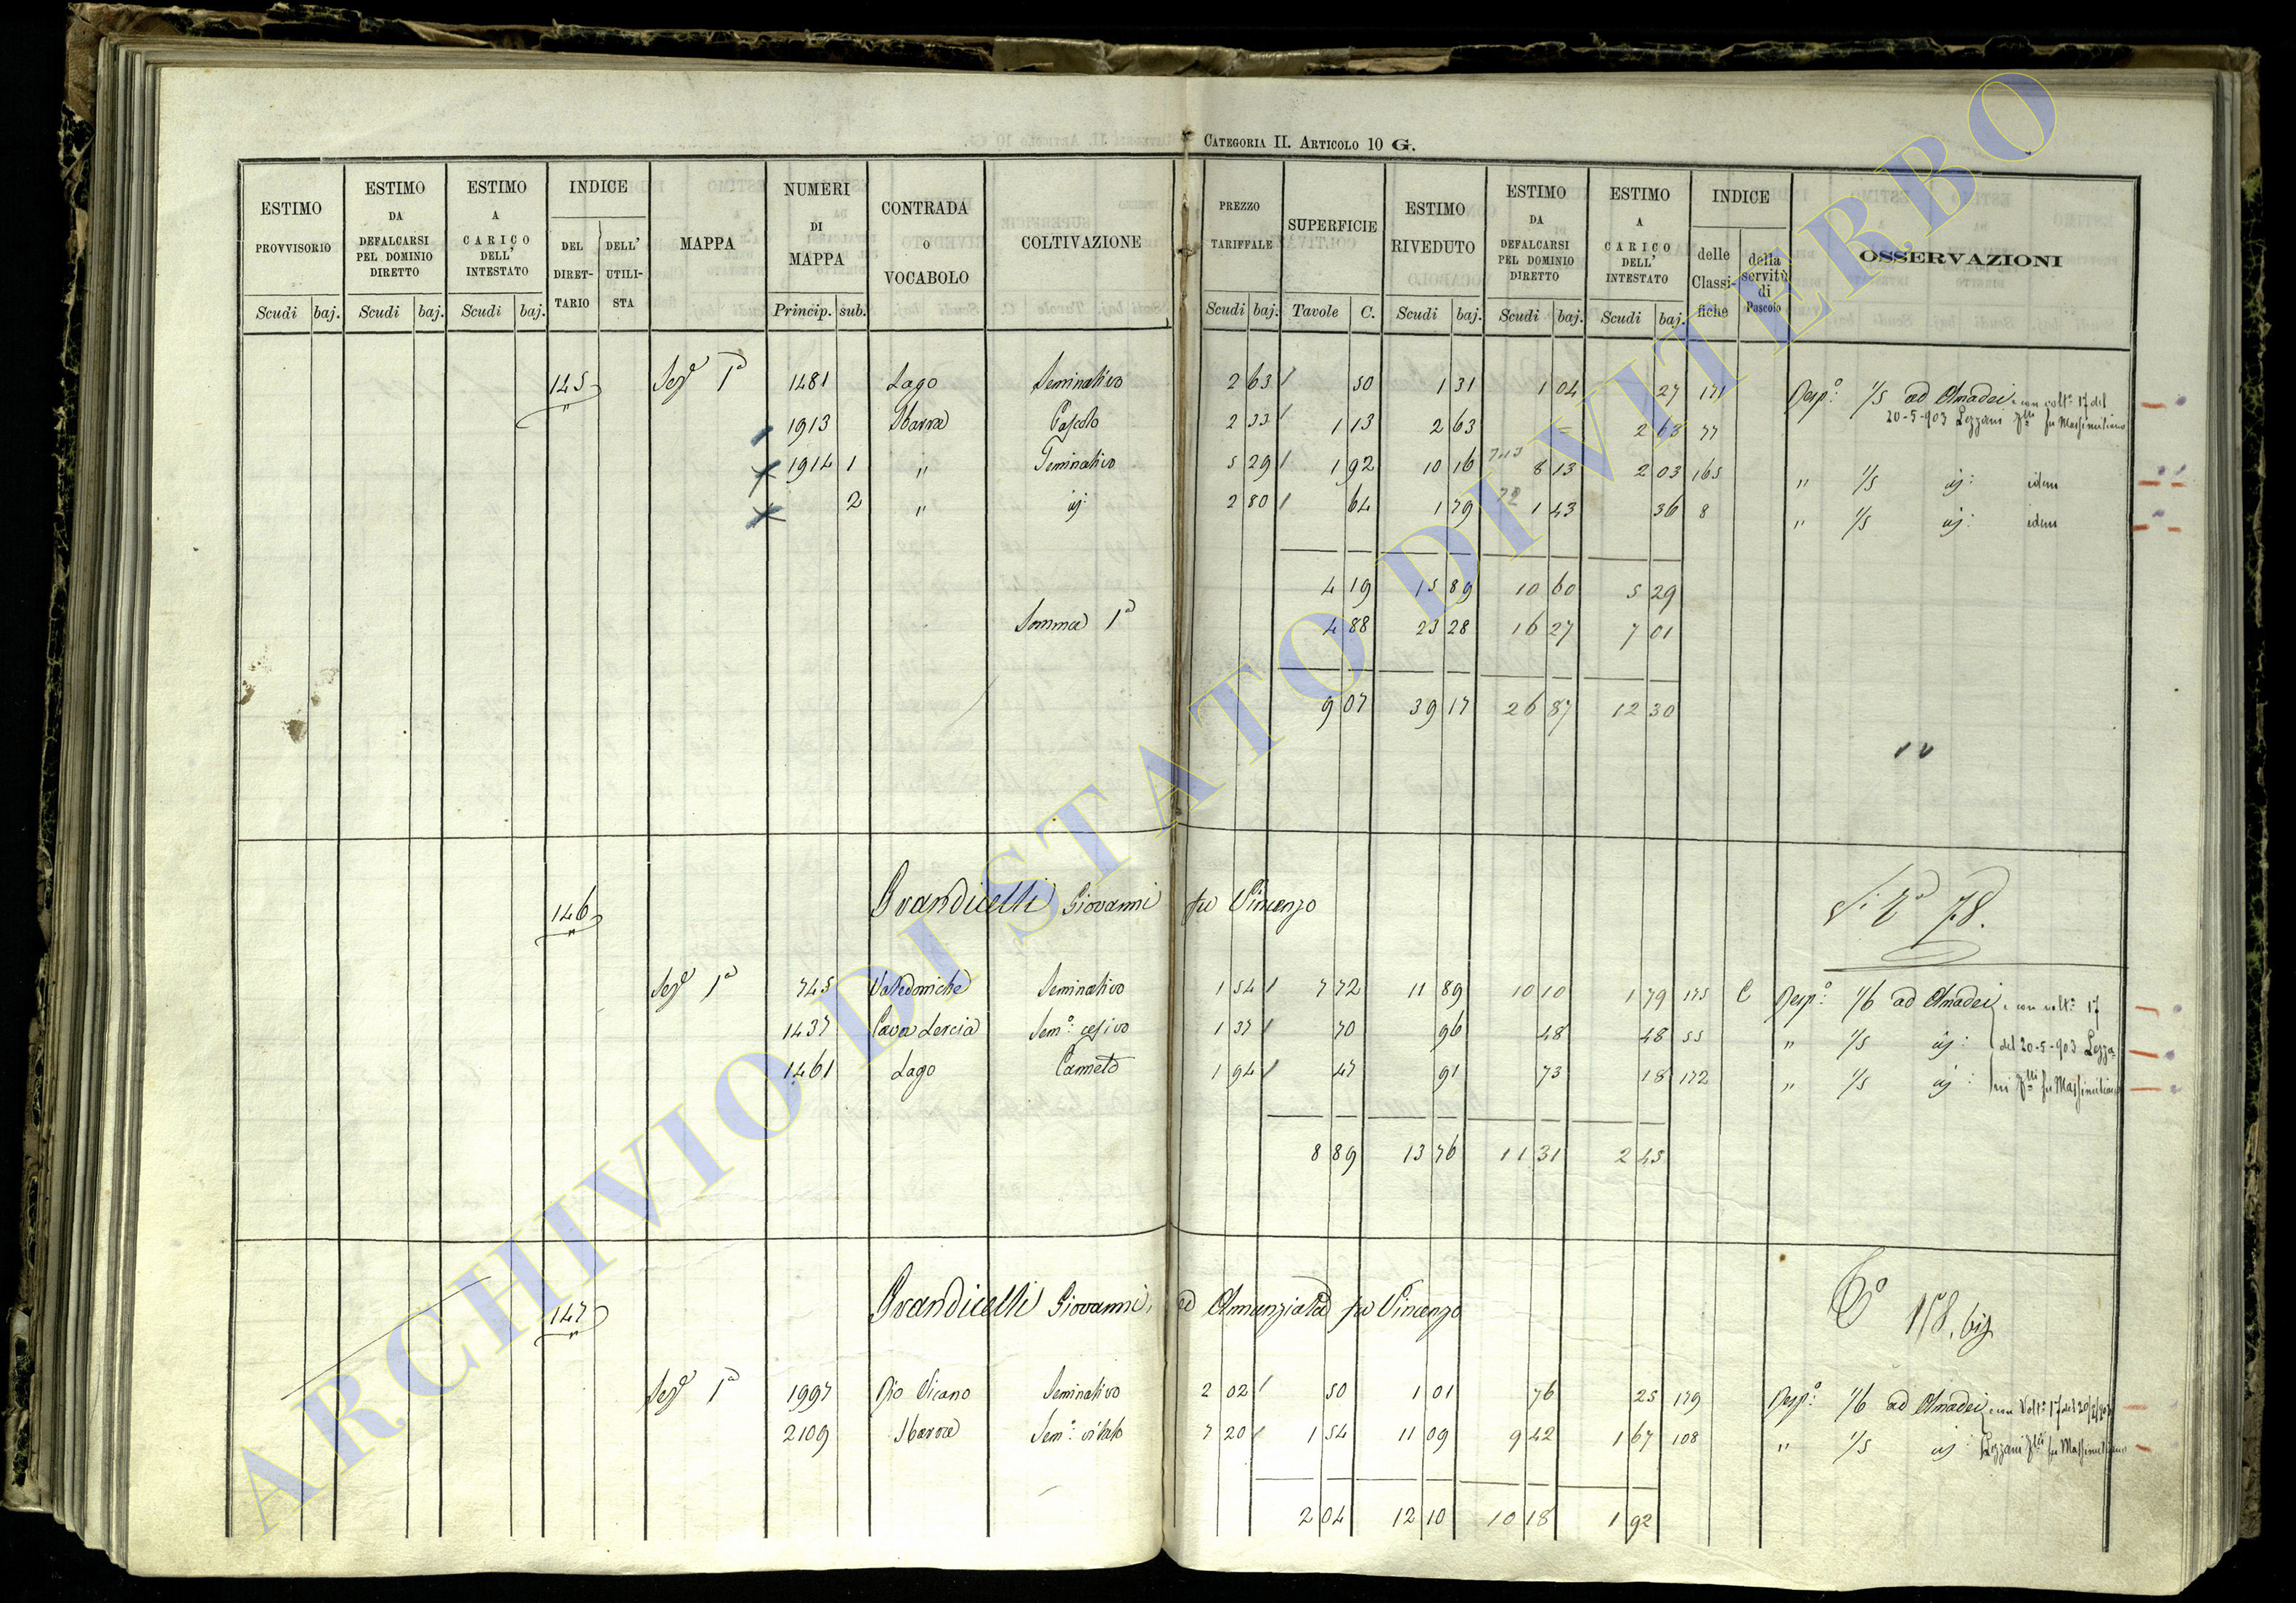 CATEGORIA II. ARTICOLO 10 G.
ESTIMO PROVVISORIO | ESTIMO DA DEFALCARSI PEL DOMINIO DIRETTO | ESTIMO A CARICO DELL' INTESTATO | INDICE DEL DIRETTARIO | DELL' UTILISTA | MAPPA | NUMERI DI MAPPA | CONTRADA O VOCABOLO | COLTIVAZIONE | PREZZO TARIFFALE | SUPERFICIE | ESTIMO RIVEDUTO | ESTIMO DA DEFALCARSI PEL DOMINIO DIRETTO | ESTIMO A CARICO DELL' INTESTATO | INDICE delle Classifiche | della servitù di Pascolo | OSSERVAZIONI
Scudi | baj. | Scudi | baj. | Scudi | baj. | Princip. | sub. | Scudi | baj. | Tavole | C. | Scudi | baj. | Scudi | baj. | Scudi | baj.
145 Sezᵉ 1ª 1481 Lago Seminativo 2 63 50 1 31 1 04 27 171 Resp: 1/5 ad Amadei e con volt: 17 del
20-5-903 Lezzani Massimiliano
1913 Sbarra Pascolo 2 33 1 13 2 63 = 2 63 77
1914 1 " Seminativo 5 29 1 92 10 16 8 13 2 03 165 " 1/5 idem
2 " 2 80 64 1 79 1 43 36 8 " 1/5 idem
4 19 15 89 10 60 5 29
Somma 1ª 4 88 23 28 16 27 7 01
9 07 39 17 26 87 12 30
146 Brandicelli Giovanni fu Vincenzo 78.
Sezᵉ 1ª 745 Valledoniche Seminativo 1 54 7 72 11 89 10 10 1 79 175 C Resp: 1/6 ad Amadei e con volt: 17
1437 Cava Lercia Sem: 1 37 70 96 48 48 55 " 1/5 del 20-5-903 Lezza-
1461 Lago Canneto 1 94 47 91 73 18 172 " 1/5 ni fu Massimiliano
8 89 13 76 11 31 2 45
147 Brandicelli Giovanni, ed Annunziata fu Vincenzo 158. bis
Sezᵉ 1ª 1997 Rio Vicano Seminativo 2 02 50 1 01 76 25 179 Resp: 1/6 ad Amadei e con Volt: 17 del
2109 Sbarra Sem: vitato 7 20 1 54 11 09 9 42 1 67 108 " 1/5 Lezzani fu Massimiliano
2 04 12 10 10 18 1 92
ARCHIVIO DI STATO DI VITERBO